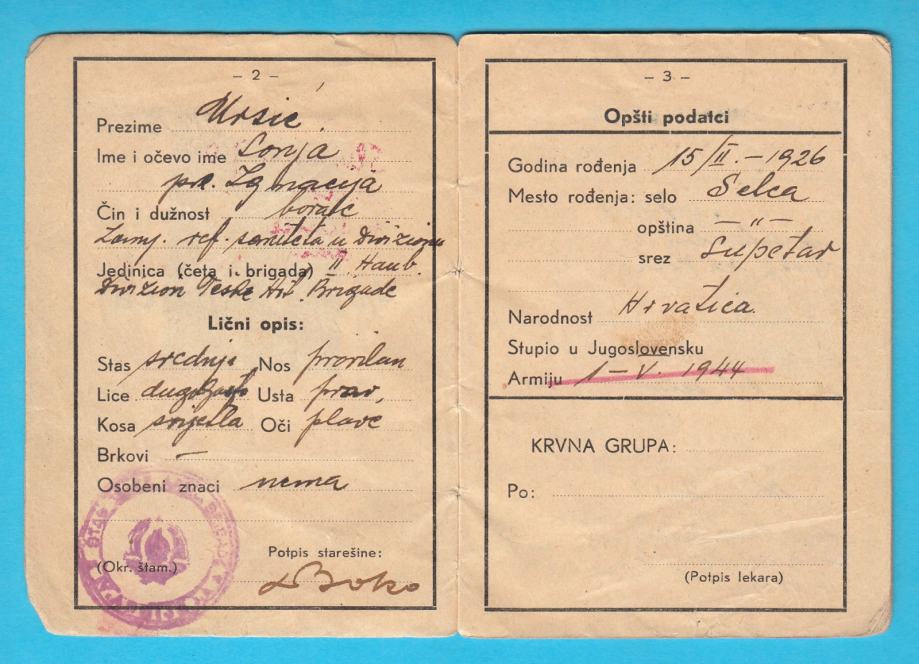 – 2 –
Prezime Ursić
Ime i očevo ime Sonja
pk. Ignacija
Čin i dužnost borac
Zamj. ref. saniteta u Divizijonu
Jedinica (četa i brigada) II Haub.
Divizion Teške Art. Brigade
Lični opis:
Stas srednje Nos pravilan
Lice dugoljasto Usta prav,
Kosa svijetla Oči plave
Brkovi —
Osobeni znaci nema
Potpis starešine:
(Okr. štam.)
– 3 –
Opšti podatci
Godina rođenja 15/II. – 1926
Mesto rođenja: selo Selca
opština –"–
srez Supetar
Narodnost Hrvatica.
Stupio u Jugoslovensku
Armiju 1 – V. 1944
KRVNA GRUPA:
Po:
(Potpis lekara)